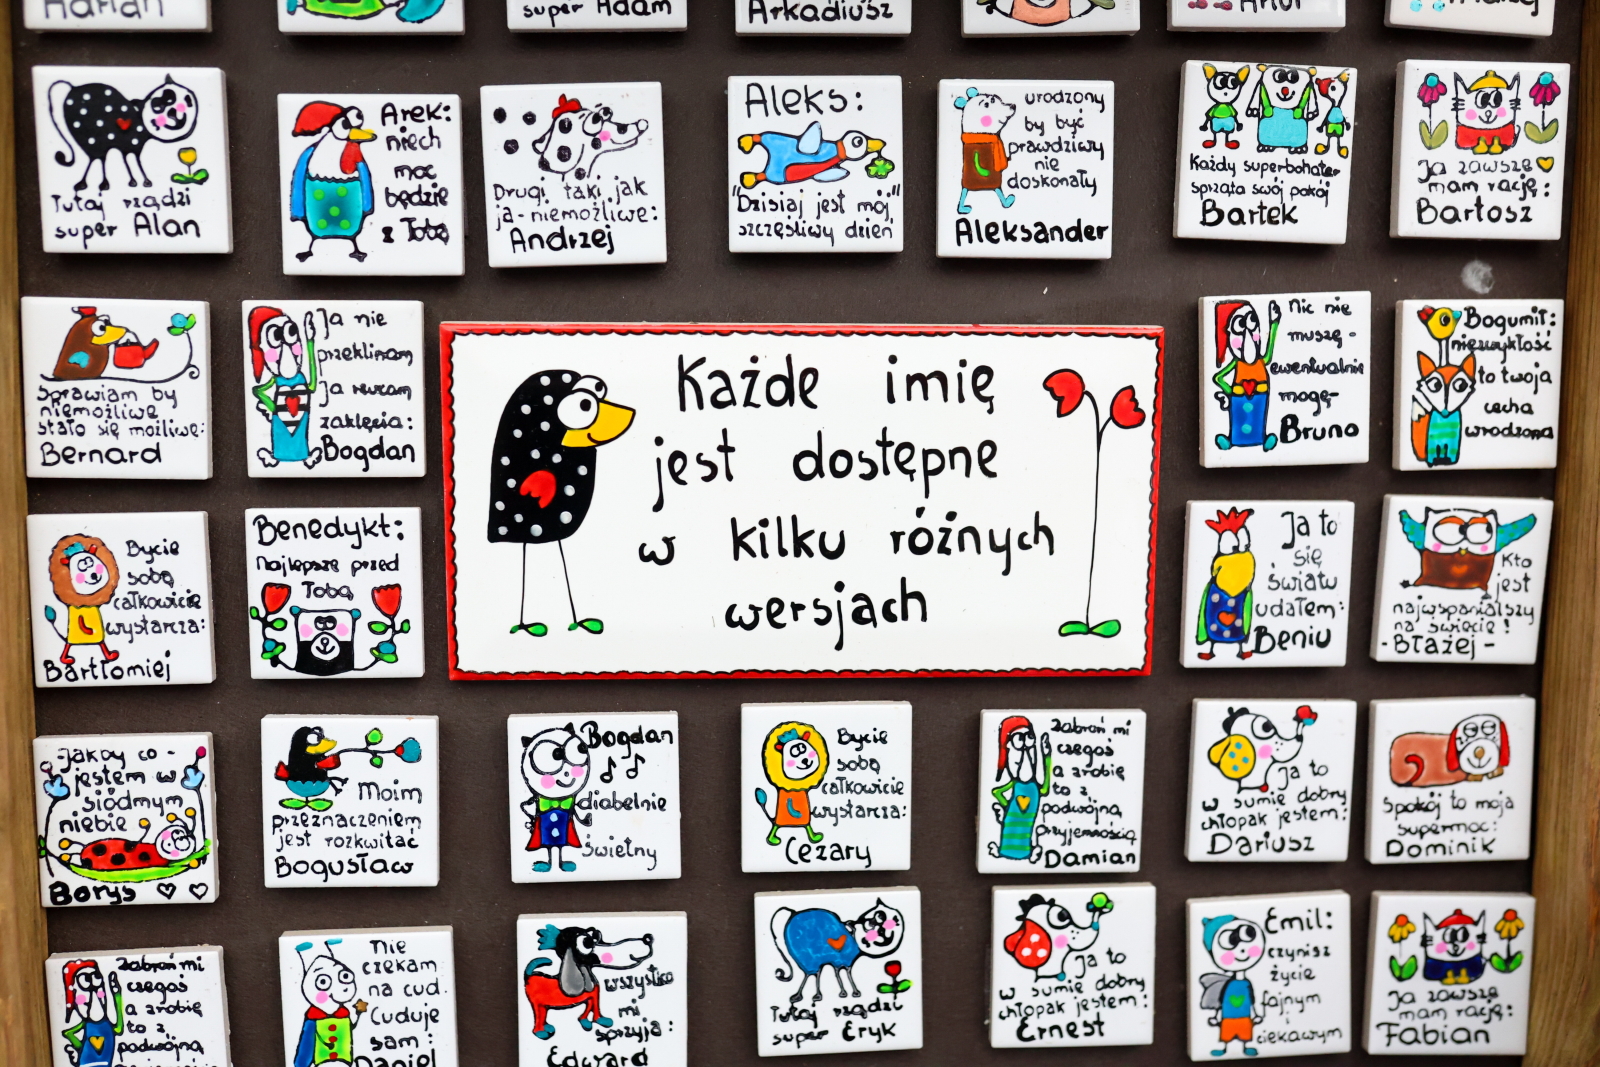 super Adam
Arkadiusz
Artur
Tutaj rządzi
super Alan
Arek:
niech
moc
będzie
z Tobą
Drugi taki jak
ja-niemożliwe:
Andrzej
Aleks:
"Dzisiaj jest mój"
szczęśliwy dzień
urodzony
by być
prawdziwy
nie
doskonały
Aleksander
Każdy superbohater
sprząta swój pokój
Bartek
Ja zawsze
mam rację:
Bartosz
Sprawiam by
niemożliwe
stało się możliwe:
Bernard
Ja nie
przeklinam
Ja rzucam
zaklęcia:
Bogdan
Każde imię
jest dostępne
w kilku różnych
wersjach
Nic nie
muszę-
ewentualnie
mogę-
Bruno
Bogumił:
niezwykłość
to twoja
cecha
wrodzona
Bycie
sobą
całkowicie
wystarcza:
Bartłomiej
Benedykt:
najlepsze przed
Tobą
Ja to
się
światu
udałem:
Beniu
Kto
jest
najwspanialszy
na świecie!
-Błażej-
-Jakby co-
jestem w
siódmym
niebie
Borys
Moim
przeznaczeniem
jest rozkwitać
Bogusław
Bogdan
diabelnie
świetny
Bycie
sobą
całkowicie
wystarcza:
Cezary
Zabroń mi
czegoś
a zrobię
to z
podwójną
przyjemnością
Damian
Ja to
w sumie dobry
chłopak jestem:
Dariusz
Spokój to moja
supermoc:
Dominik
Zabroń mi
czegoś
a zrobię
to z
podwójną
Nie
czekam
na cud.
Cuduję
sam:
Daniel
wszystko
mi
sprzyja:
Edward
Tutaj rządzi
super Eryk
Ja to
w sumie dobry
chłopak jestem:
Ernest
Emil:
czynisz
życie
fajnym
i
ciekawym
Ja zawsze
mam rację:
Fabian